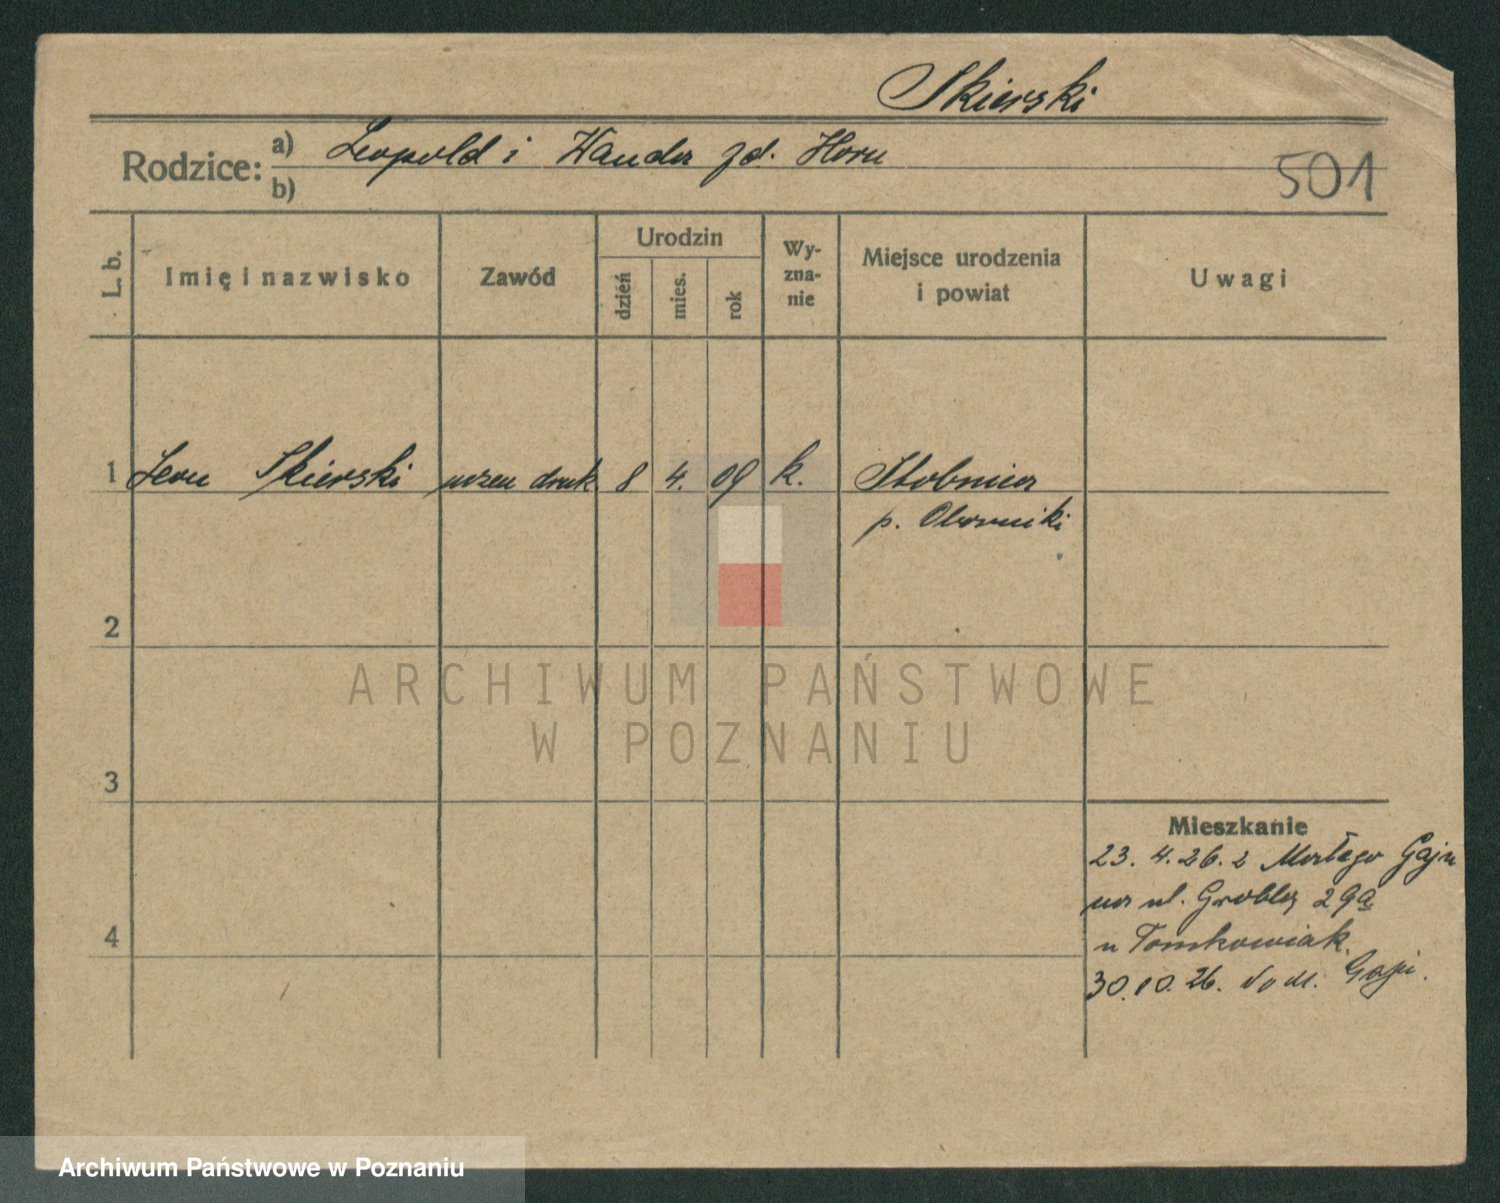 Skierski
Rodzice: a) Leopold i Wanda zd. Horn
b)
501
L. b.
Imię i nazwisko
Zawód
Urodzin
dzień
mies.
rok
Wy-
zna-
nie
Miejsce urodzenia
i powiat
Uwagi
1 Leon Skierski uczeń druk. 8 4. 09 k. Stobnica
p. Oborniki
2
ARCHIWUM PAŃSTWOWE
W POZNANIU
3
Mieszkanie
23. 4. 26. z Małego Gaju
na ul. Grobla 29a
u Tomkowiak.
4
30.10.26. Gaju.
Archiwum Państwowe w Poznaniu